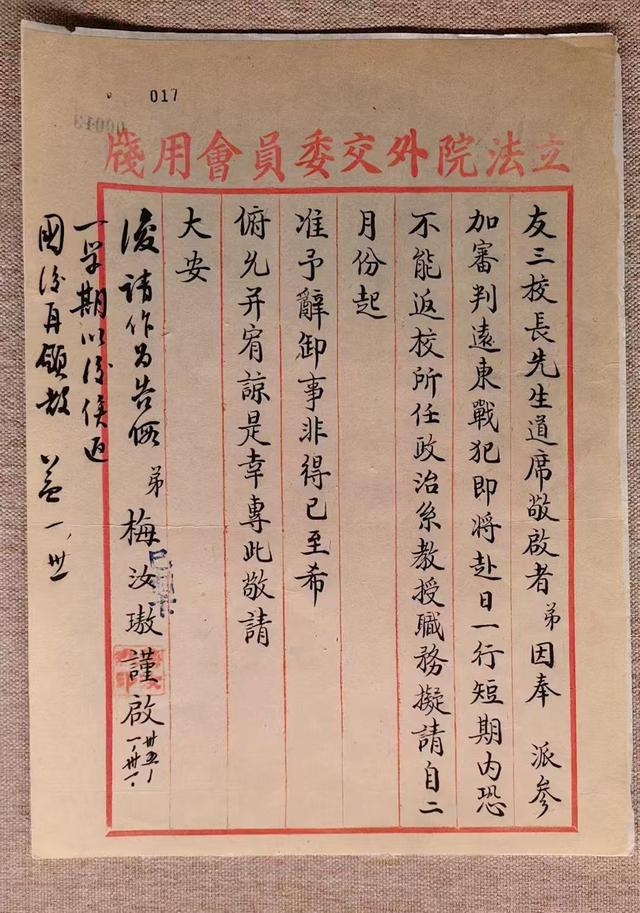 017
立法院外交委員會用牋
友三校長先生道席敬啟者弟因奉 派參
加審判遠東戰犯即將赴日一行短期內恐
不能返校所任政治系教授職務擬請自二
月份起
准予辭卸事非得已至希
俯允并宥諒是幸專此敬請
大安
弟 梅汝璈謹啟
卅五、一、卅一、
復請作為告假
一學期以後俟返
國後再領教 一、卅一